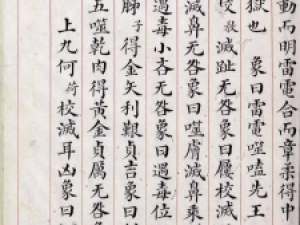 動而明雷電合而章柔得中
獄也 象曰雷電噬嗑先王
校教滅趾无咎象曰屨校滅
滅鼻无咎象曰噬膚滅鼻乘
遇毒小吝无咎象曰遇毒位
胏子得金矢利艱貞吉象曰
五噬乾肉得黃金貞厲无咎象
上九何荷校滅耳凶象曰